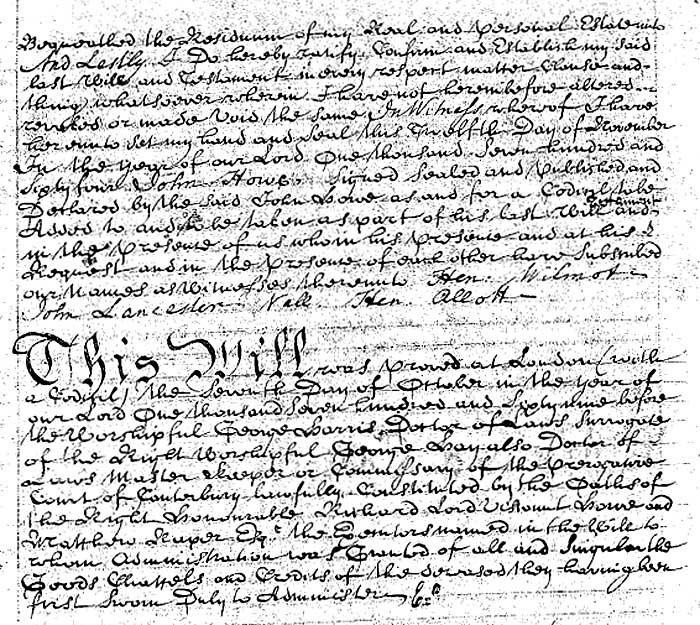 Bequeathed the Residuum of my Real and Personal Estate unto
And Lastly I Do hereby ratify Confirm and Establish my said
last Will and Testament in every respect matter Clause and
thing whatsoever wherein I have not herein before altered
revoked or made void the same In Witness whereof I have
hereunto set my hand and Seal this Twelfth Day of November
In the Year of our Lord One thousand Seven hundred and
Sixty four John Howe Signed Sealed and Published and
Declared by the said John Howe as and for a Codicil to be
Added to and to be taken as part of his last Will and Testament
in the Presence of us whom his Presence and at his
Request and in the Presence of each other have Subscribed
our Names as Witnesses thereunto Hen. Wilmot
John Lancester Nall Hen. Allott
This Will was proved at London (with
a Codicil) the Seventh Day of October in the Year of
our Lord One thousand Seven hundred and Sixty nine before
the Worshipful George Harris Doctor of Laws Surrogate
of the Right Worshipful George Hay also Doctor of
Laws Master Keeper or Commissary of the Prerogative
Court of Canterbury lawfully Constituted by the Oaths of
the Right Honourable Richard Lord Viscount Howe and
Matthew Raper Esqr. the Executors named in the Will to
whom Administration was Granted of all and Singular the
Goods Chattels and Credits of the deceased they having been
first Sworn Duly to Administer